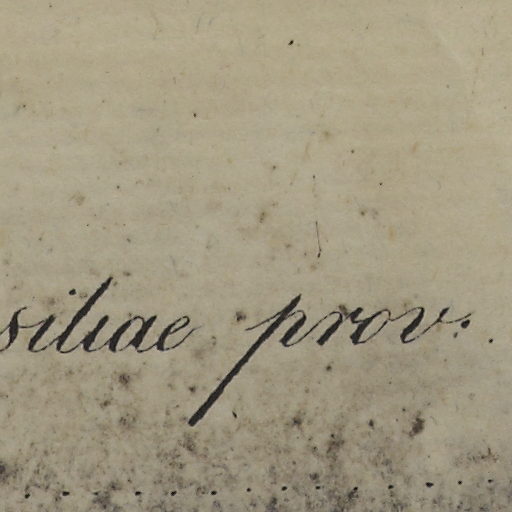 siliae prov.